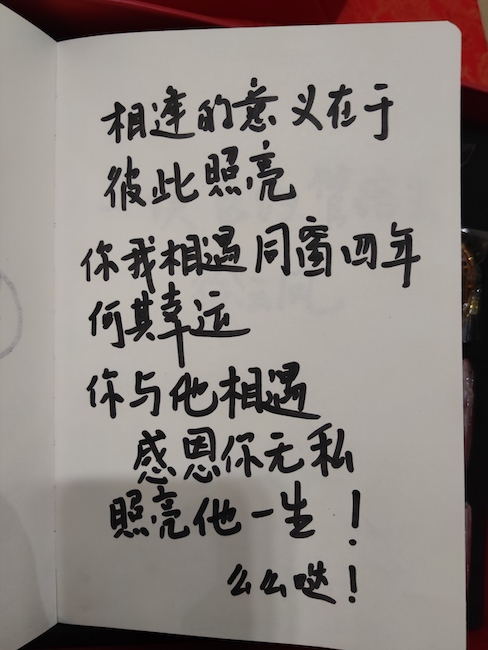 相逢的意义在于
彼此照亮
你我相遇同窗四年
何其幸运
你与他相遇
感恩你无私
照亮他一生！
么么哒！